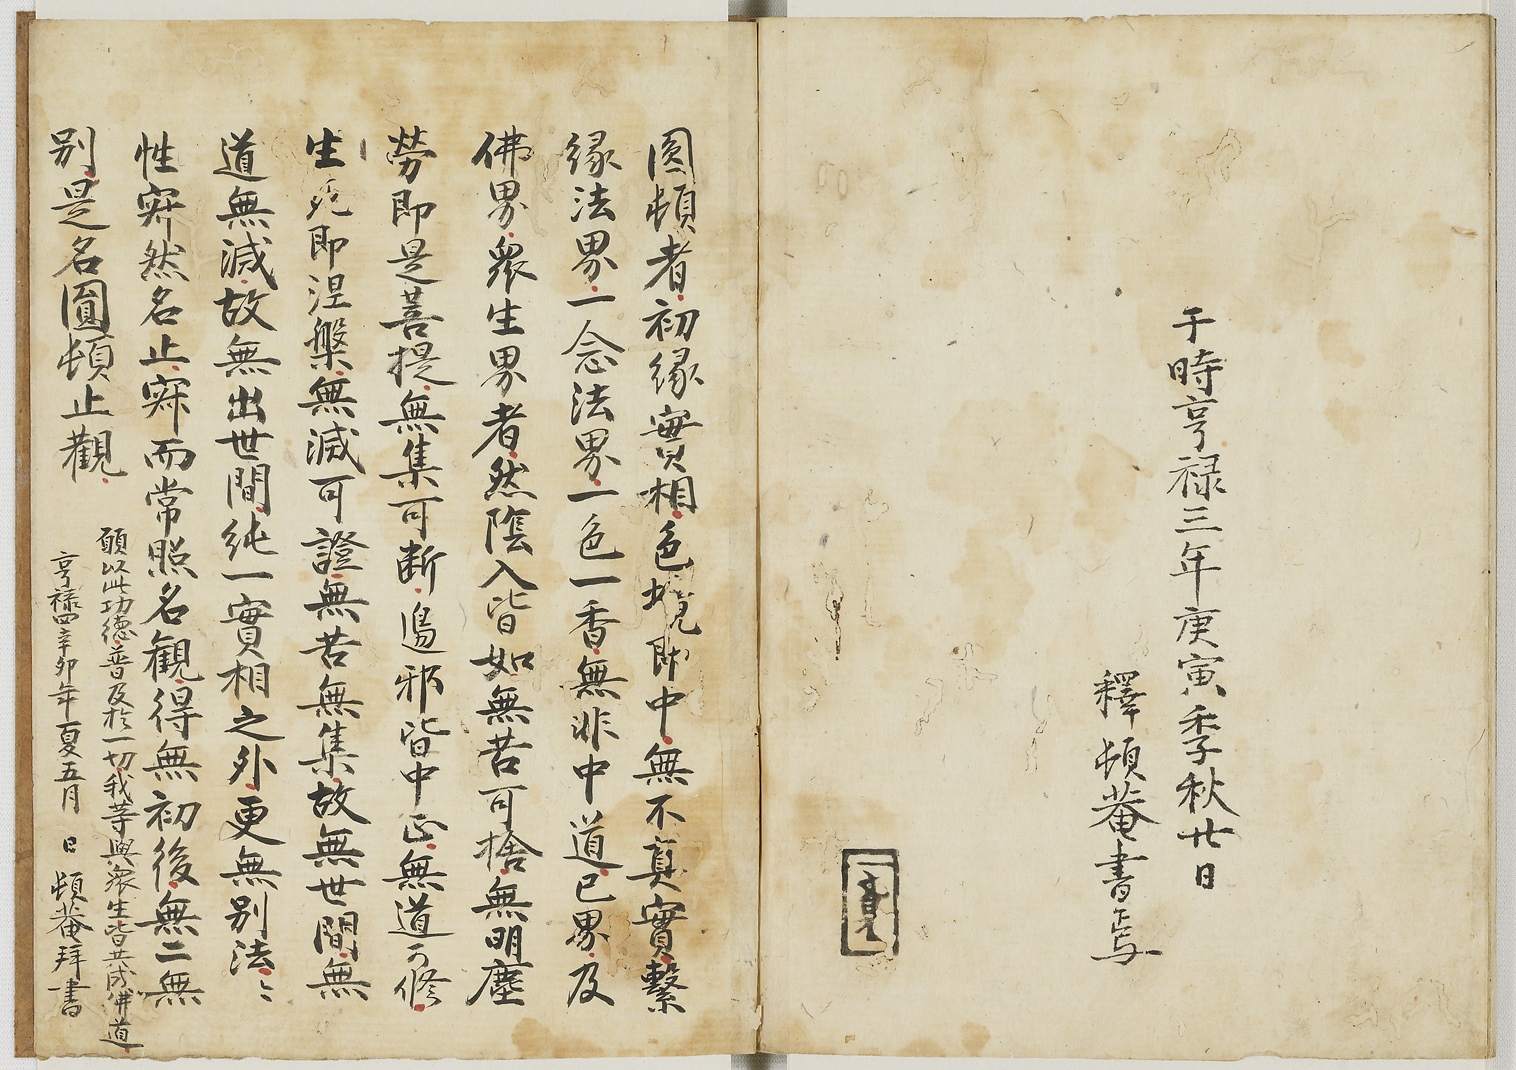 于時亨禄三年庚寅季秋廿日
釋頓菴書写
圓頓者初縁實相色境即中無不真實繫
縁法界一念法界一色一香無非中道已界及
佛界衆生界者然陰入皆如無苦可捨無明塵
勞即是菩提無集可断邊邪皆中正無道可修
生死即涅槃無滅可證無苦無集故無世間無
道無滅故無出世間純一實相之外更無別法〻
性寂然名止寂而常照名觀得無初後無二無
別是名圓頓止觀
願以此功徳普及於一切我等與衆生皆共成佛道
亨禄四辛卯年夏五月 日 頓菴拜書